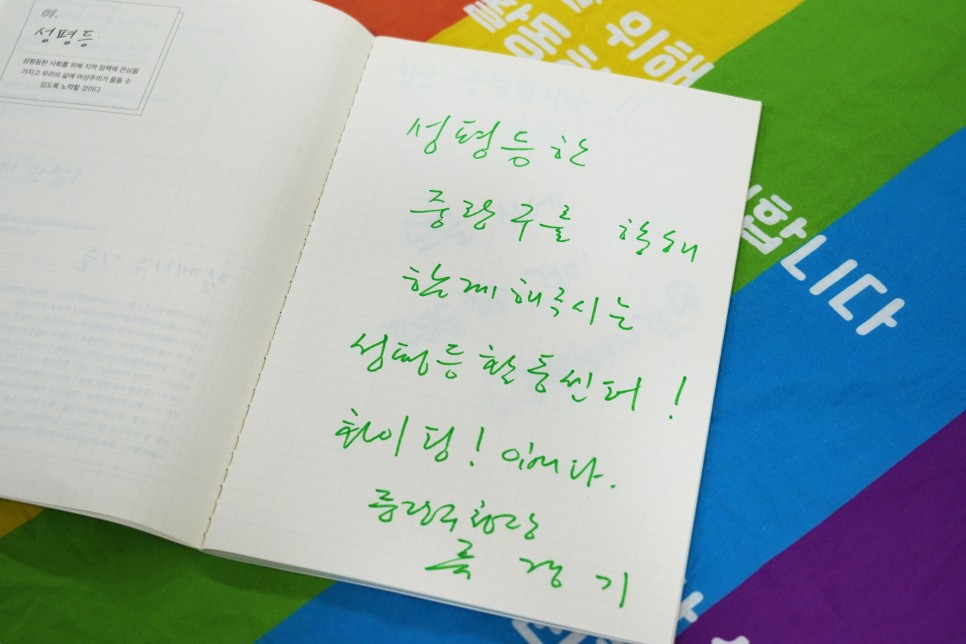 01.
성평등
성평등한 사회를 위해 지역 정책에 관심을
가지고 우리의 삶에 여성주의가 물들 수
있도록 노력할 것이다
위해
활동
합니다
성평등한
중랑구를 향해
함께해주시는
성평등활동센터!
화이팅! 입니다.
중랑구청장
류경기